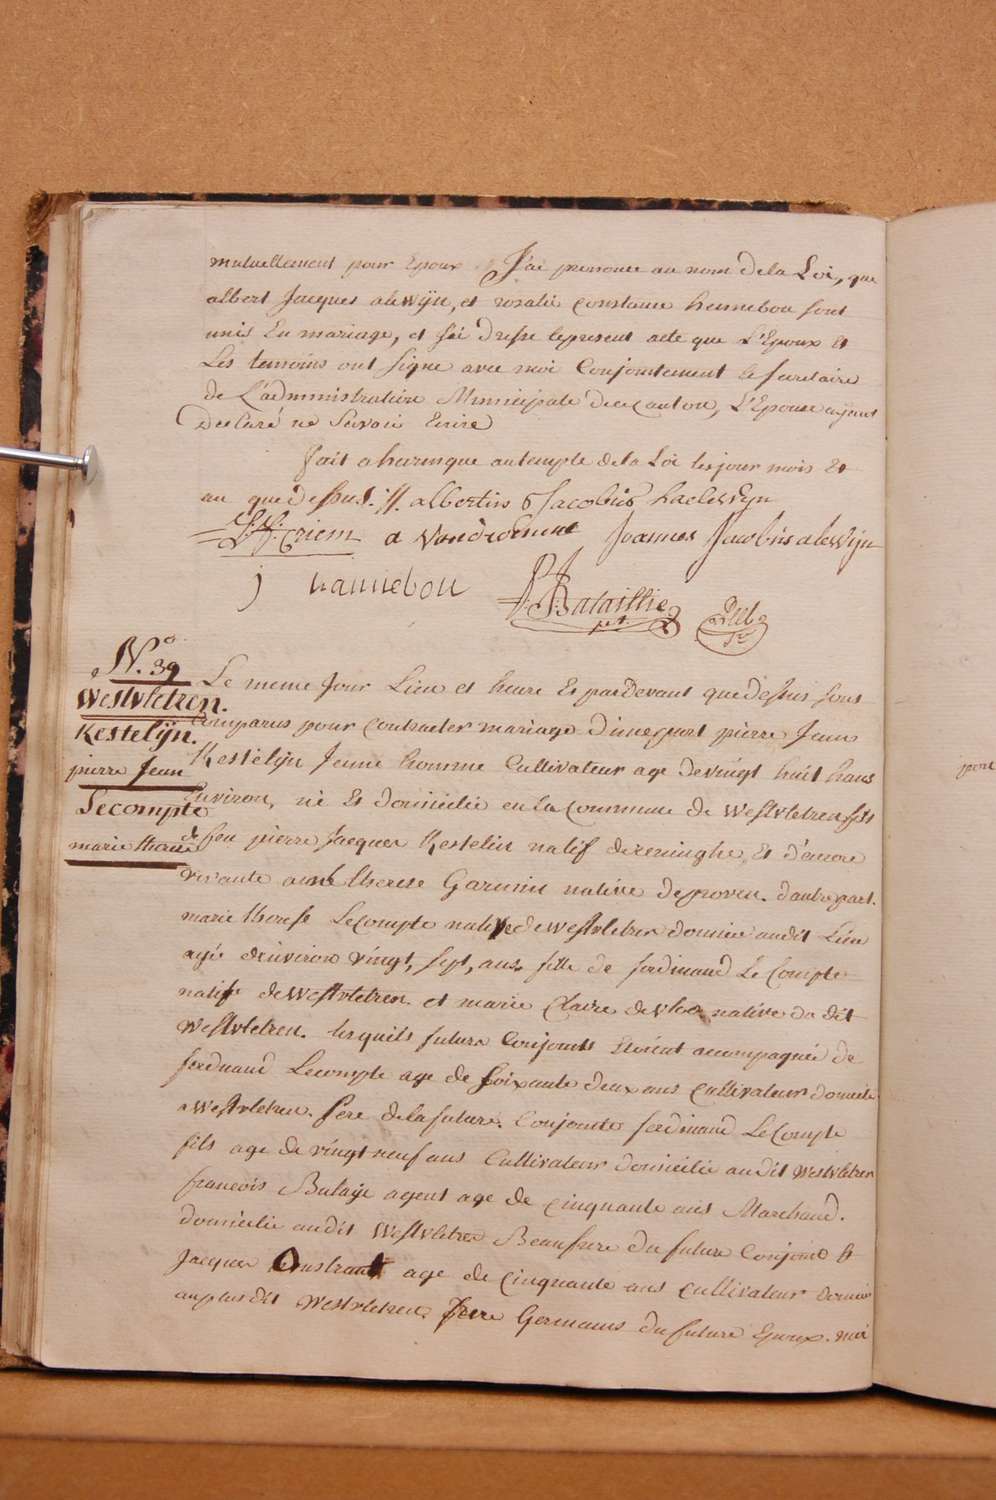 mutuellement pour Epoux. J'ai prononce au nom de la Loi, que
albert Jacques alewijn, et rosalie constance hennebou sont
unis En mariage, et j'ai Dresse lepresent acte que L'Epoux et
Les temoins ont signe avec moi Conjointement le secretaire
de L'administration Municipale de ce canton, L'Epouse ayant
Declaré ne Savoir Ecrire
fait a haringue au temple de la Loi les jour mois Et
an que Dessus. //. albertus Jacobus haelewyn
criem a Vandromme Joannes Jacobus alewijn
j hannebou Bataillie
N.o 39
Westvletren.
Kestelijn.
pierre Jean
Lecompte
marie therese
Le meme Jour Lieu et heure Et pardevant que dessus sont
comparus pour contracter mariage d'une part pierre Jean
Kestelijn Jeune homme Cultivateur age de vingt huit hans
Environ, né Et domicilie en la commune de Westvletren fils
de feu pierre Jacques Kestelin natif de reninghe, Et d'encore
vivante anne therese Garmin native de proven. d'autre part.
marie therese Lecompte native de Westvletren domicie audit Lieu
agée d'environ vingt, sept, ans fille de ferdinand Le Compte
natif de Westvletren et marie Claire de vloo native du dit
Westvletren. lesquels futurs Conjoints Etoient accompagnée de
ferdinand Lecompte age de soixante deux ans cultivateur domicile
a Westvletren. pere de la future. Conjointe ferdinand Le Compte
fils age de vingt neuf ans Cultivateur domicilie audit Westvletren
francois Bataije agent age de cinquante ans Marchand.
domicilie audit Westvletren Beaufrere du future Conjoint &
Jacques age de cinquante ans cultivateur domici
au plus dit Westvletren. frere Germains du future Epoux. moi
pour